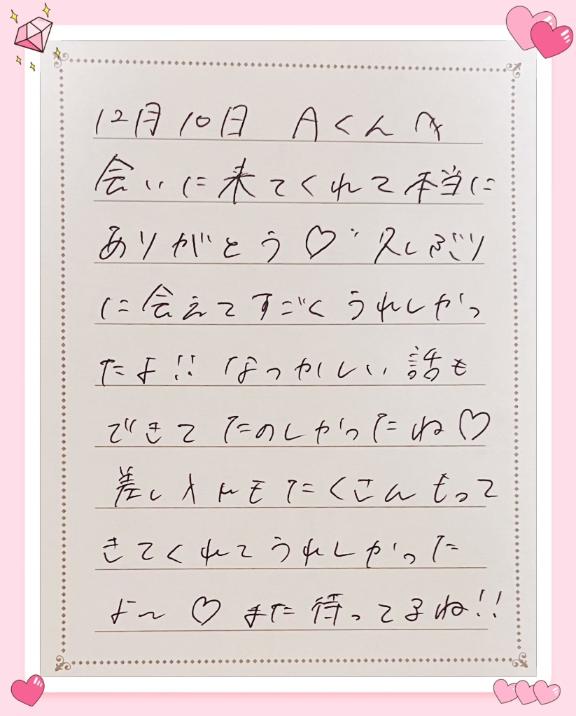 12月10日 Aくんへ
会いに来てくれて本当に
ありがとう♡ 久しぶり
に会えてすごくうれしかっ
たよ!! なつかしい話も
できてたのしかったね♡
差し入れもたくさんもって
きてくれてうれしかった
よ〜♡ また待ってるね!!